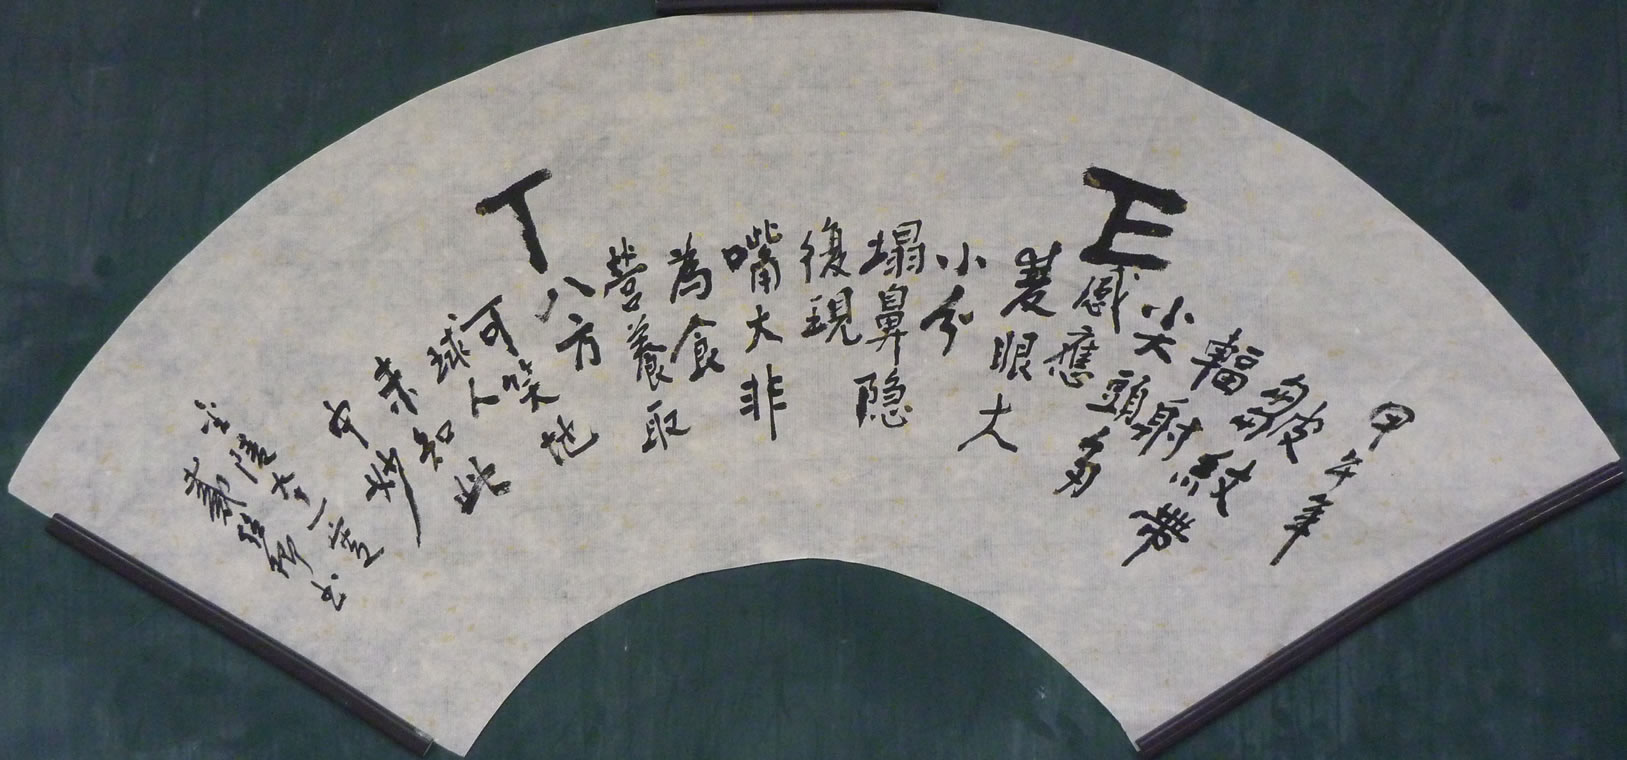 甲午年
E T
皺紋帶
輻射
尖頭多
感應
菱眼大
小分
塌鼻隐
復現
嘴大非
為食
營養取
八方
可笑地
球人
未知此
中妙
金陵